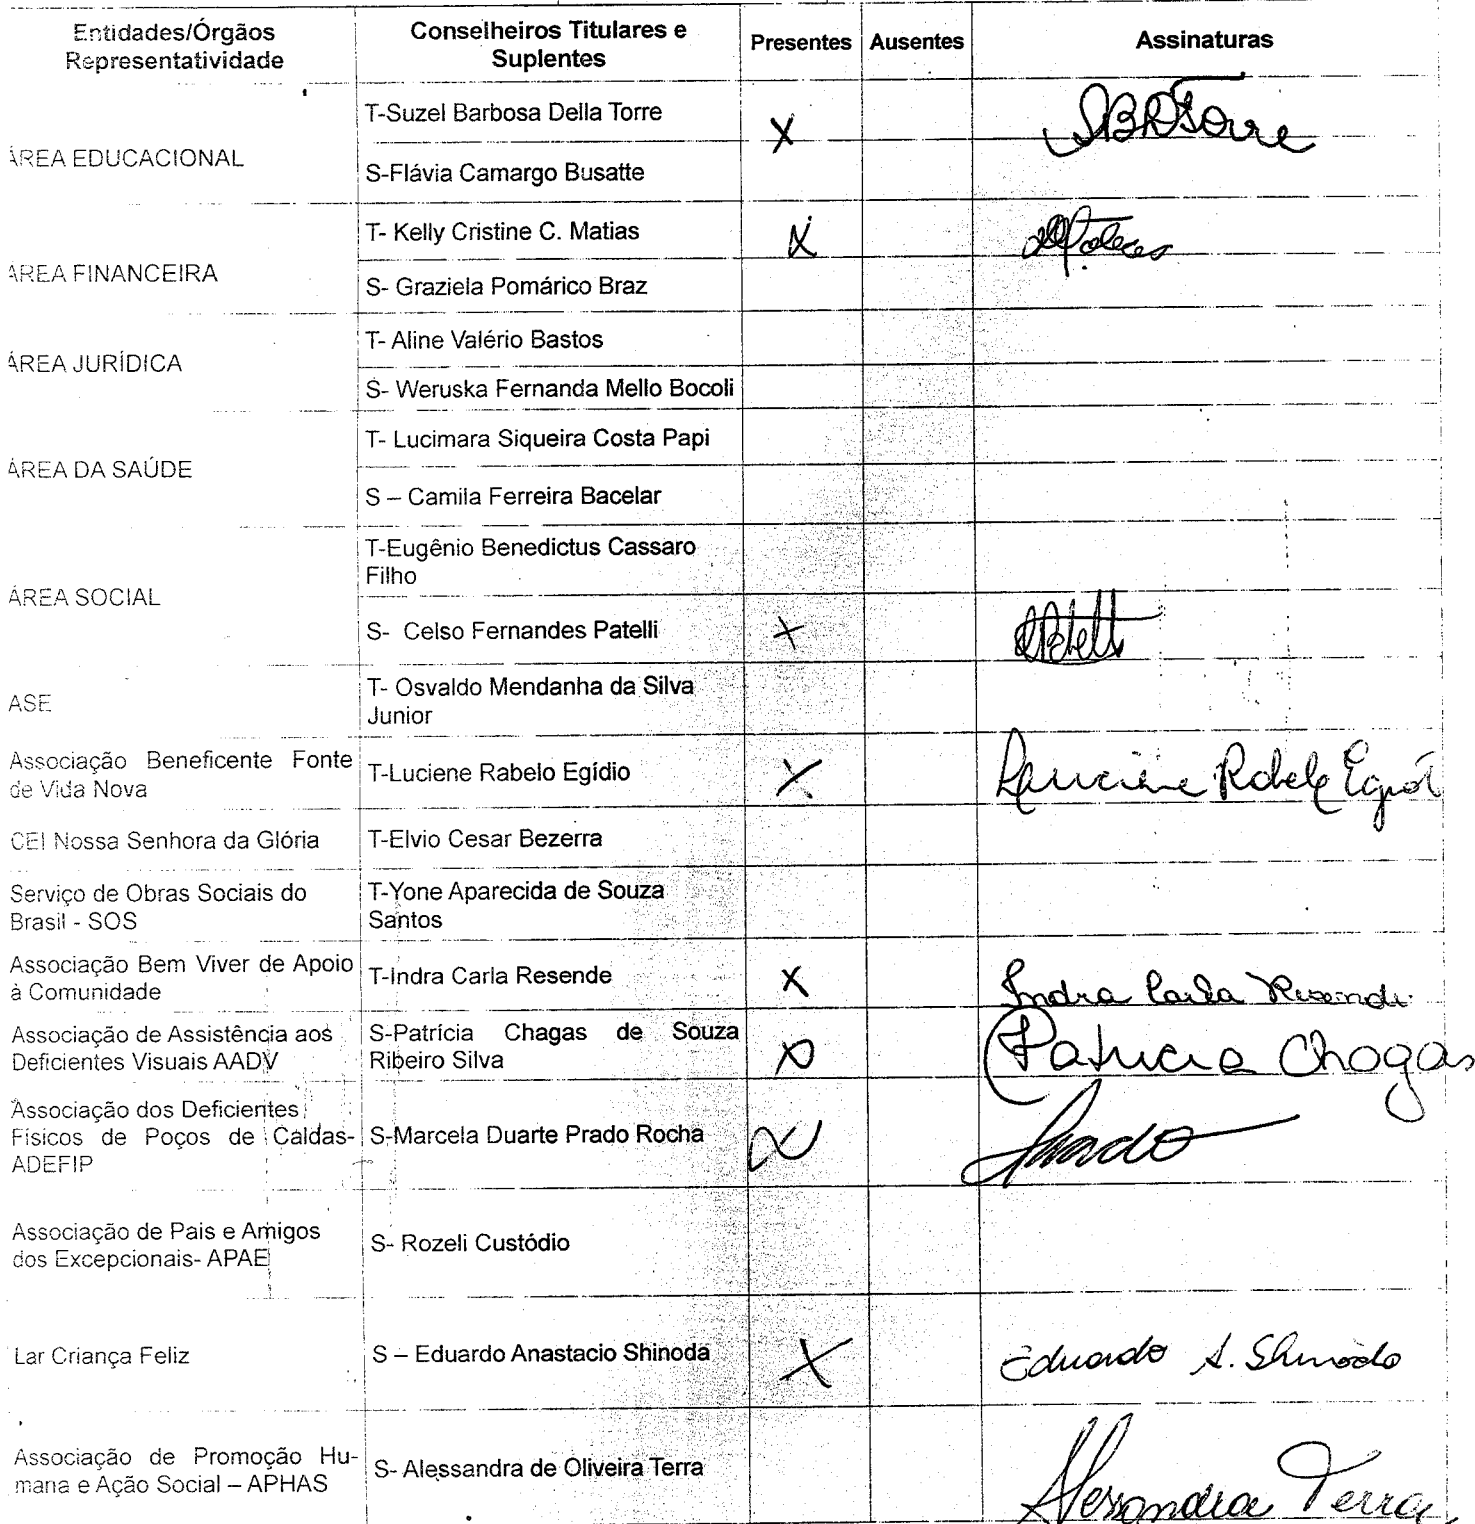 Entidades/Órgãos
Representatividade
Conselheiros Titulares e
Suplentes
Presentes
Ausentes
Assinaturas
ÁREA EDUCACIONAL
T-Suzel Barbosa Della Torre
X
SBDTorre
S-Flávia Camargo Busatte
ÁREA FINANCEIRA
T- Kelly Cristine C. Matias
X
S- Graziela Pomárico Braz
ÁREA JURÍDICA
T- Aline Valério Bastos
S- Weruska Fernanda Mello Bocoli
ÁREA DA SAÚDE
T- Lucimara Siqueira Costa Papi
S – Camila Ferreira Bacelar
ÁREA SOCIAL
T-Eugênio Benedictus Cassaro
Filho
S- Celso Fernandes Patelli
X
ASE
T- Osvaldo Mendanha da Silva
Junior
Associação Beneficente Fonte
de Vida Nova
T-Luciene Rabelo Egídio
X
Luciene Rabelo
CEI Nossa Senhora da Glória
T-Elvio Cesar Bezerra
Serviço de Obras Sociais do
Brasil - SOS
T-Yone Aparecida de Souza
Santos
Associação Bem Viver de Apoio
à Comunidade
T-Indra Carla Resende
X
Indra Carla Resende
Associação de Assistência aos
Deficientes Visuais AADV
S-Patrícia Chagas de Souza
Ribeiro Silva
X
Patricia Chagas
Associação dos Deficientes
Físicos de Poços de Caldas-
ADEFIP
S-Marcela Duarte Prado Rocha
X
Prado
Associação de Pais e Amigos
dos Excepcionais- APAE
S- Rozeli Custódio
Lar Criança Feliz
S – Eduardo Anastacio Shinoda
X
Eduardo A. Shinoda
Associação de Promoção Hu-
mana e Ação Social – APHAS
S- Alessandra de Oliveira Terra
Alessandra Terra